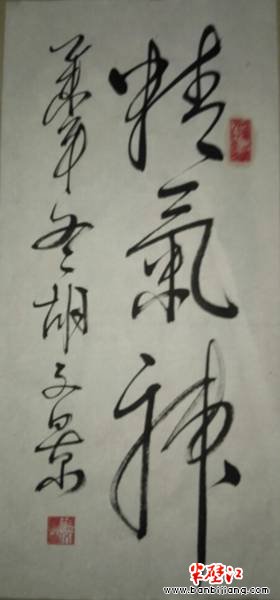 精氣神
年冬胡文景
半壁江
www.banbijiang.com